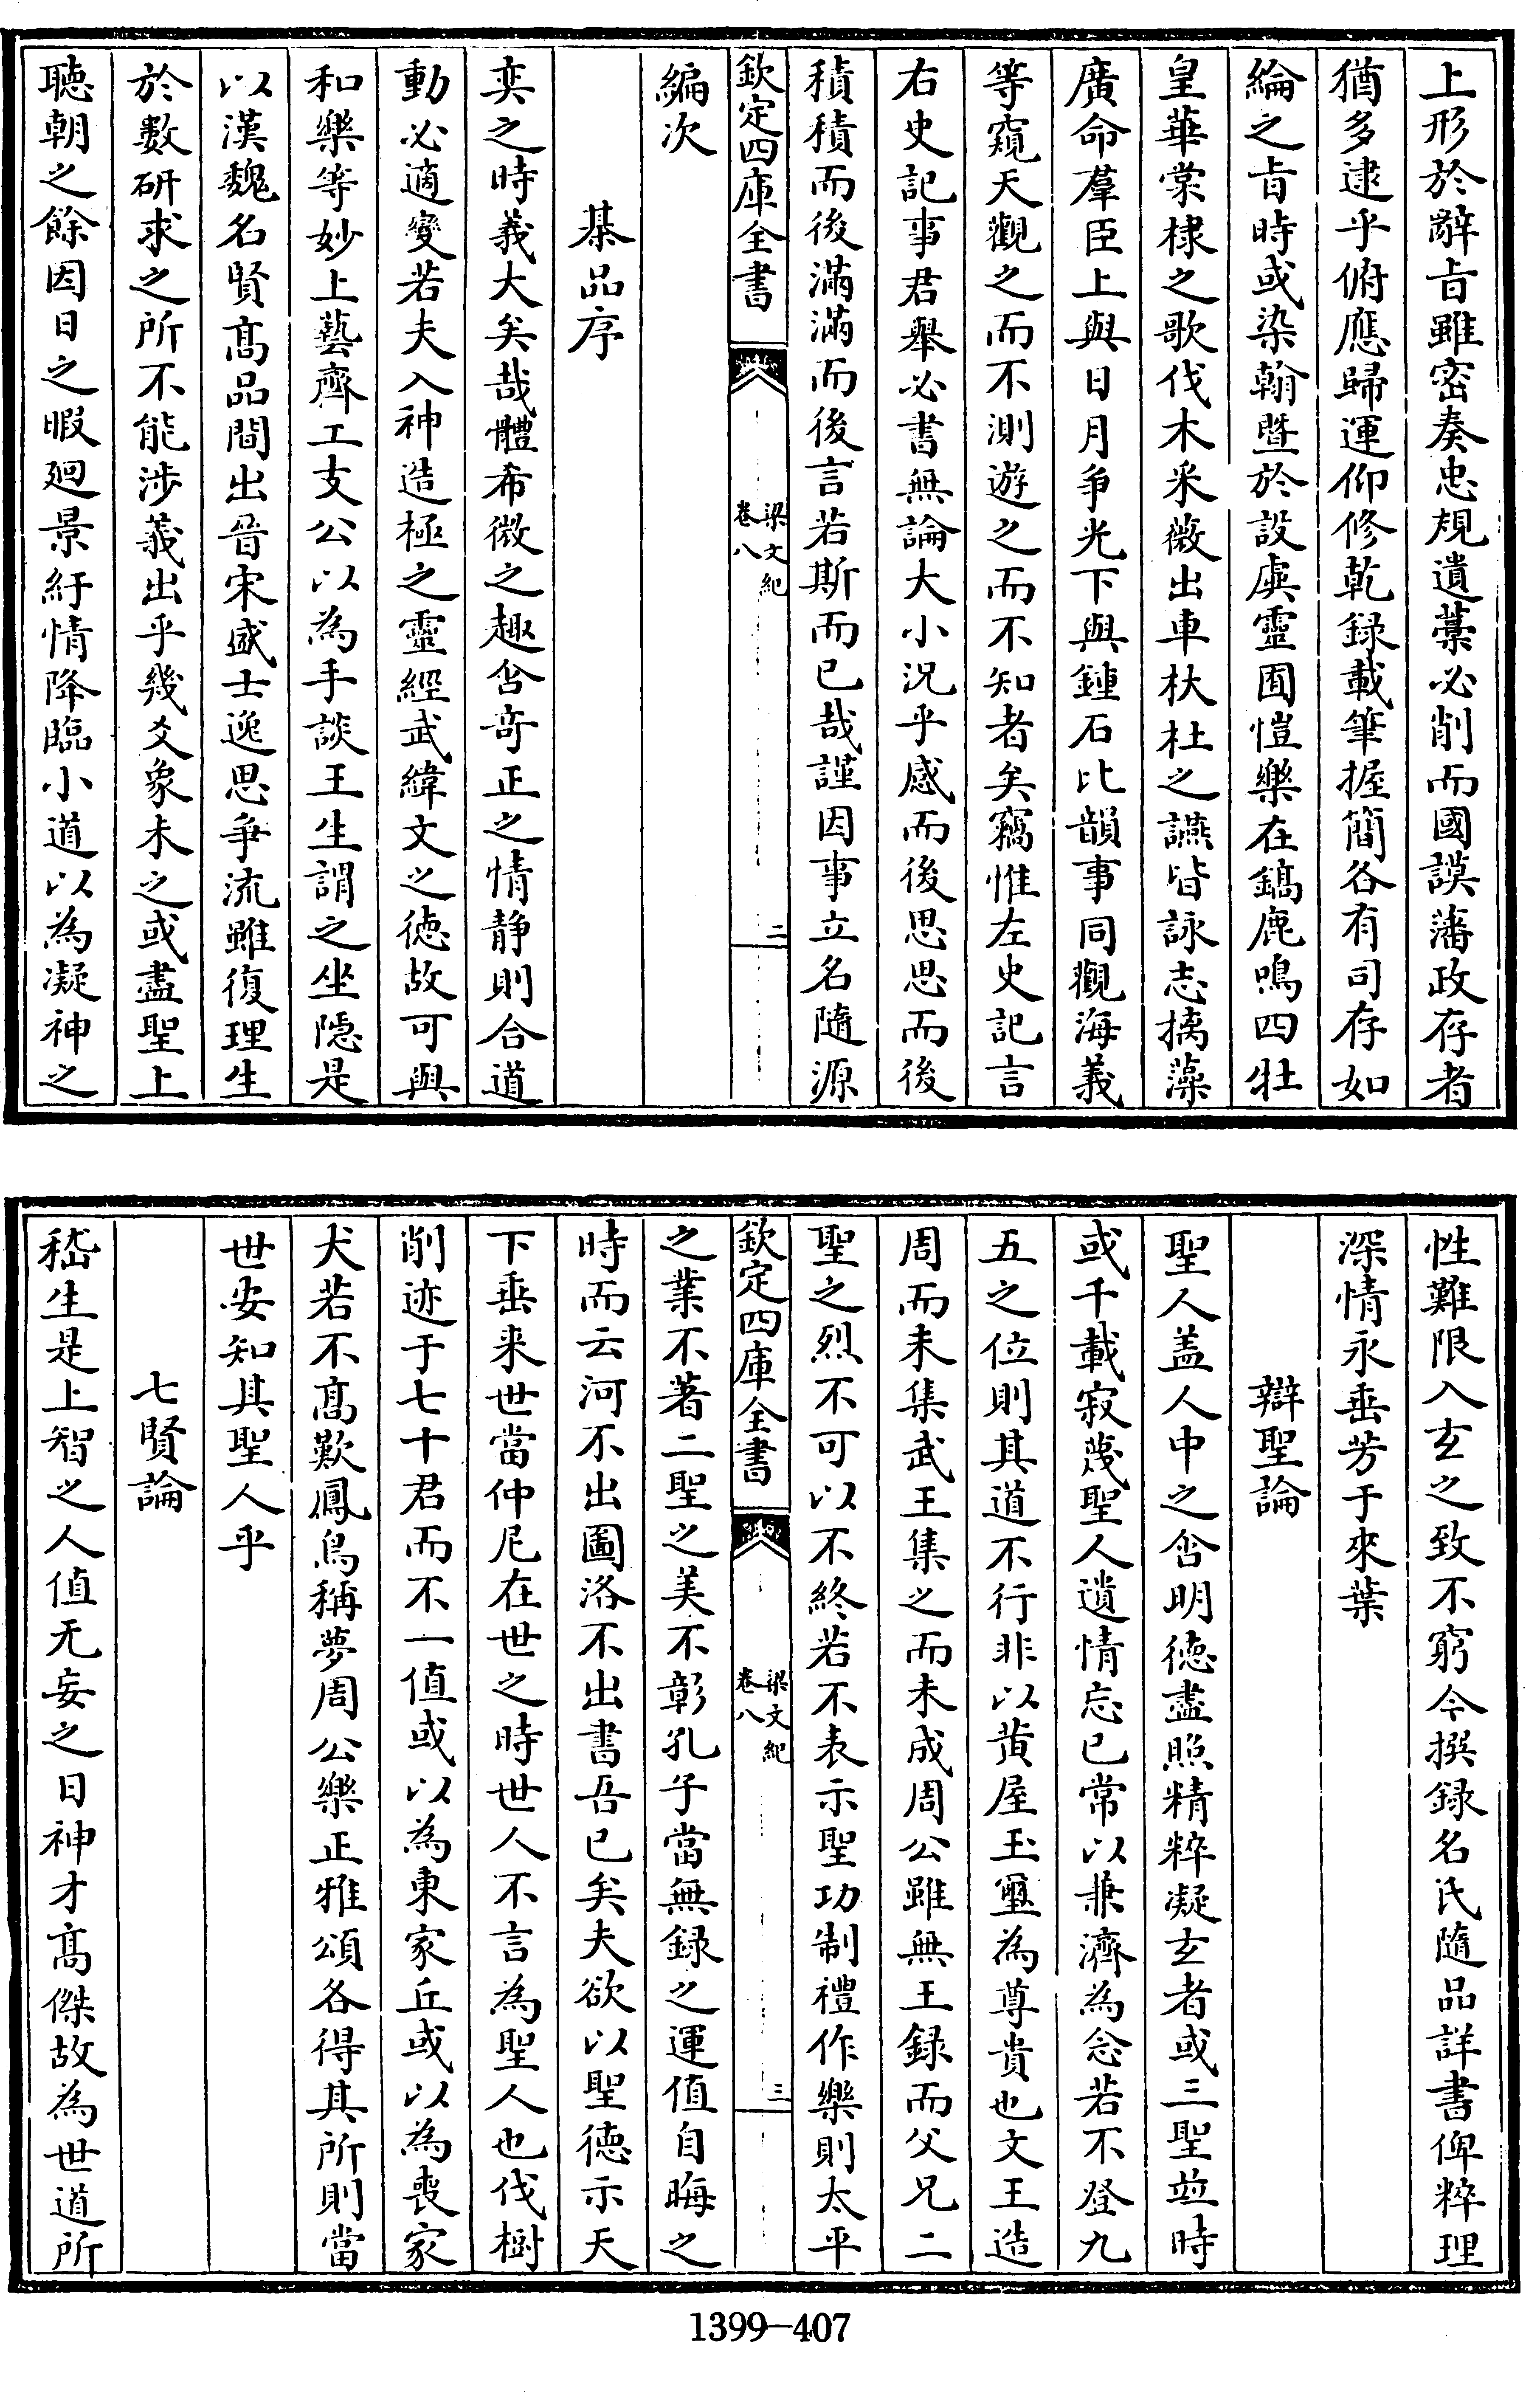 上形於辭㫖雖密奏忠規遺藁必削而國謨藩政存者
猶多逮乎俯應歸運仰修乾録載筆握簡各有司存如
綸之㫖時或染翰暨於設虡靈囿愷樂在鎬鹿鳴四牡
皇華棠棣之歌伐木采薇出車杕杜之讌皆詠志摛藻
廣命羣臣上與日月爭光下與鍾石比韻事同觀海義
等窺天觀之而不測遊之而不知者矣竊惟左史記言
右史記事君舉必書無論大小況乎感而後思思而後
積積而後滿滿而後言若斯而已哉謹因事立名隨源
欽定四庫全書
梁文紀
卷八
二
編次
棊品序
奕之時義大矣哉體希微之趣含奇正之情静則合道
動必適變若夫入神造極之靈經武緯文之徳故可與
和樂等妙上藝齊工支公以為手談王生謂之坐隠是
以漢魏名賢髙品間出晉宋盛士逸思爭流雖復理生
於數研求之所不能涉義出乎幾爻象未之或盡聖上
聽朝之餘因日之暇廻景紆情降臨小道以為凝神之
性難限入玄之致不窮今撰録名氏隨品詳書俾粹理
深情永垂芳于來葉
辯聖論
聖人盖人中之含明徳盡照精粹凝玄者或三聖並時
或千載寂蔑聖人遺情忘已常以兼濟為念若不登九
五之位則其道不行非以黄屋玉璽為尊貴也文王造
周而未集武王集之而未成周公雖無王録而父兄二
聖之烈不可以不終若不表示聖功制禮作樂則太平
欽定四庫全書
梁文紀
卷八
三
之業不著二聖之美不彰孔子當無録之運值自晦之
時而云河不出圖洛不出書吾已矣夫欲以聖徳示天
下垂来世當仲尼在世之時世人不言為聖人也伐樹
削迹于七十君而不一值或以為東家丘或以為喪家
犬若不髙歎鳳鳥稱夢周公樂正雅頌各得其所則當
世安知其聖人乎
七賢論
嵇生是上智之人值无妄之日神才髙傑故為世道所
1399—407